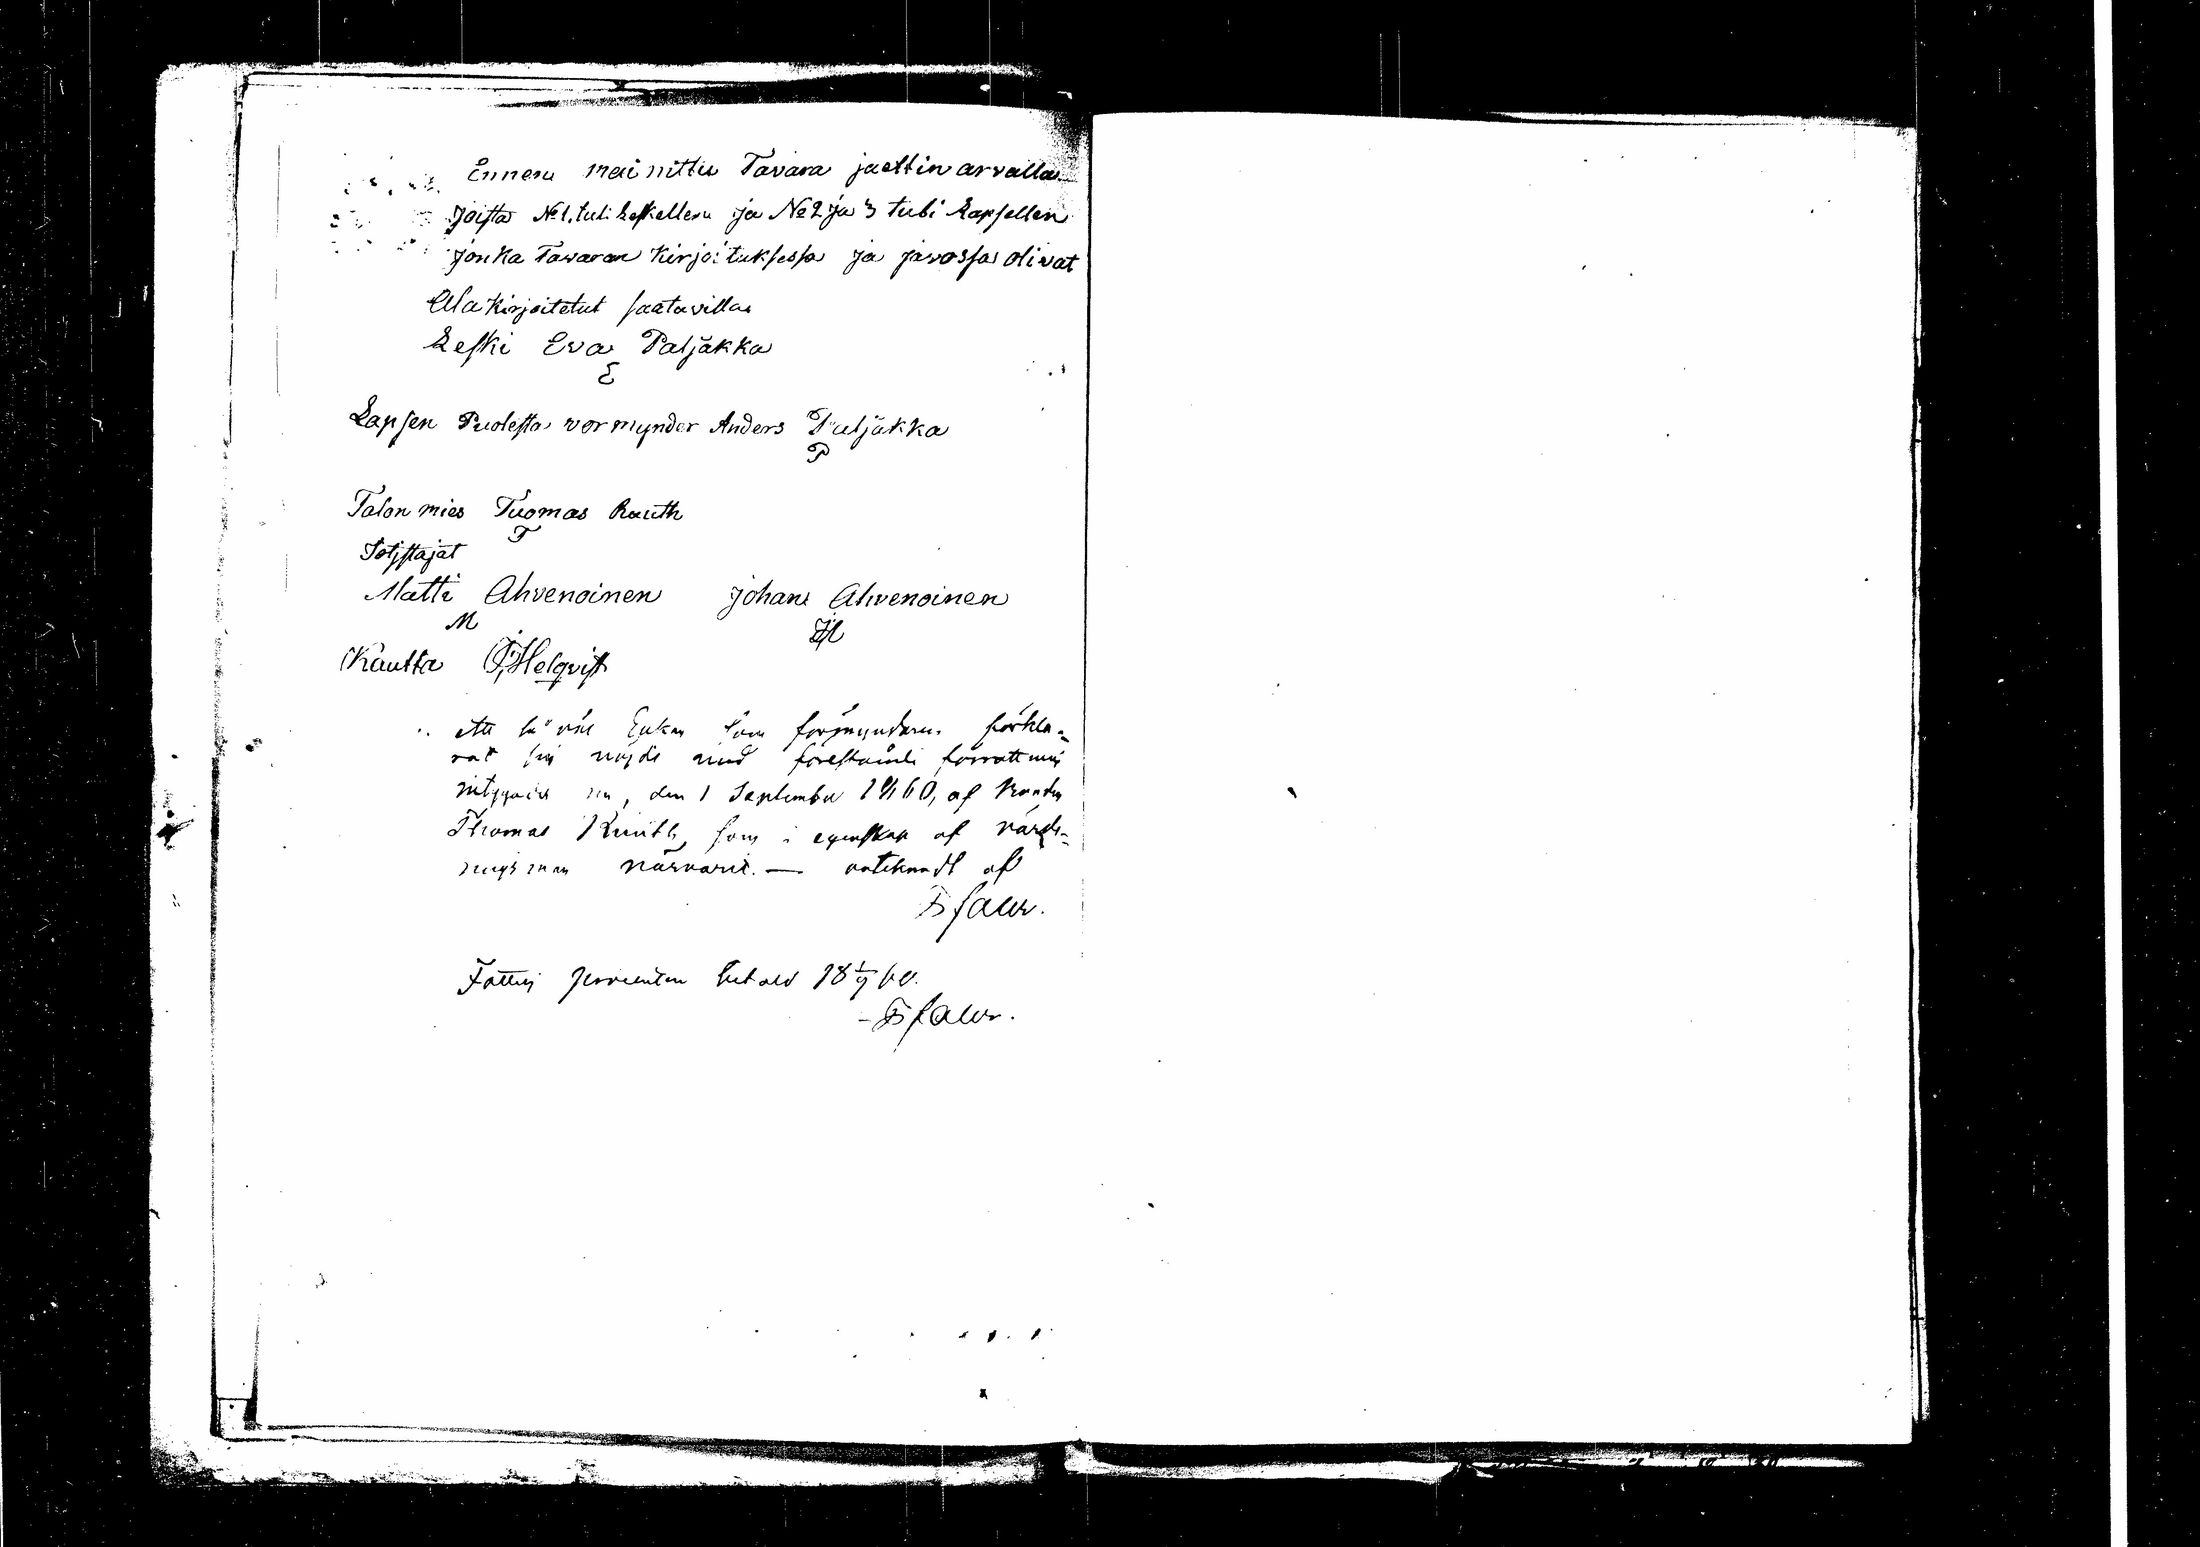 Ennen mainittu Tavara jaettin arvalla
joista No 1. tuli Leskellen ja No 2 ja 3 tuli Lapsellen
jonka Tavaran Kirjoituksessa ja javossa olivat
Alakirjoitetut saatavilla
Leski Eva Paljakka
E
Lapsen Puolesta vormynder Anders Paljakka
P
Talon mies Tuomas Knuth
T
Totistajat
Matti Ahvenoinen Johan Ahvenoinen
M JA
Kautta Helqvist
Att så väl Enkan som förmyndaren förkla-
rat sig nöjde med förestående förrättning
den 1 September 1860, af Bonden
Thomas Knuth, som i egenskap af värde-
ringsman närvarit. — antecknadt af
Fattig procenten betald 18 1/9 60.